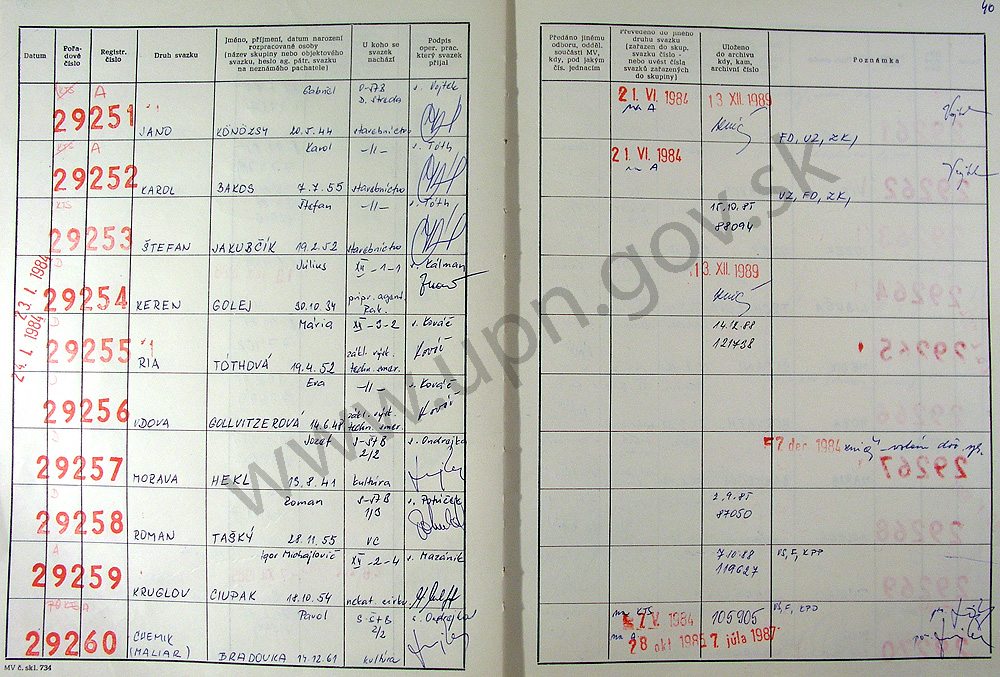 40
Datum
Pořadové číslo
Registr. číslo
Druh svazku
Jméno, příjmení, datum narození rozpracované osoby (název skupiny nebo objektového svazku, heslo ag. pátr. svazku na neznámého pachatele)
U koho se svazek nachází
Podpis oper. prac. který svazek přijal
Předáno jinému odboru, odděl. součásti MV, kdy, pod jakým čís. jednacím
Převedeno do jiného druhu svazku (zařazen do skup. svazku číslo - nebo uvést čísla svazků zařazených do skupiny)
Uloženo do archivu kdy, kam, archivní číslo
Poznámka
KTS A Gabriel s. Vojtek
29251 JANO KÖNÖZSY 20.5.44 D. Streda stavebníctvo
21. VI. 1984 na A 13 XII. 1989 FD, VZ, ZK,
KTS A Karol -||- s. Tóth
29252 KAROL BAKOS 7.7.55 stavebníctvo
21. VI. 1984 na A VZ, FD, ZK,
KTS Štefan -||- s. Tóth
29253 ŠTEFAN JAKUBČÍK 19.2.52 stavebníctvo
15.10.85 88094
23. I. 1984
D Július XII-1-1 s. Kálman
29254 KEREN GOLEJ 30.10.34 pripr. agent. Rak.
13 XII. 1989
24. I. 1984
D Mária XII-3-2 s. Kováč
29255 RIA TÓTHOVÁ 19.4.52 zákl. výsk. techn. smer.
14.12.88 121738
D Eva -||- s. Kováč
29256 VDOVA GOLLVITZEROVÁ 14.6.48 zákl. výsk. techn. smer.
Jozef S-ŠtB 2/2 s. Ondrejka
29257 MORAVA HEKL 13.8.41 kultúra
7. dec. 1984
D Roman
29258 ROMAN TAŠKÝ 28.11.55 VC
2.9.85 87050
A Igor Michajlovič XII-2-4 s. Mazánik
29259 KRUGLOV CIUPAK 18.10.54
7.10.88 119627 VŠ, F, KPP
Pavol S-ŠtB 2/2 s. Ondrejka
29260 CHEMIK (MALIAR) BRADOVKA 17.12.61 kultúra
na KTS 7. V. 1984 105905
na A 28 okt 1985 7. júla 1987
MV č. skl. 734
www.upn.gov.sk